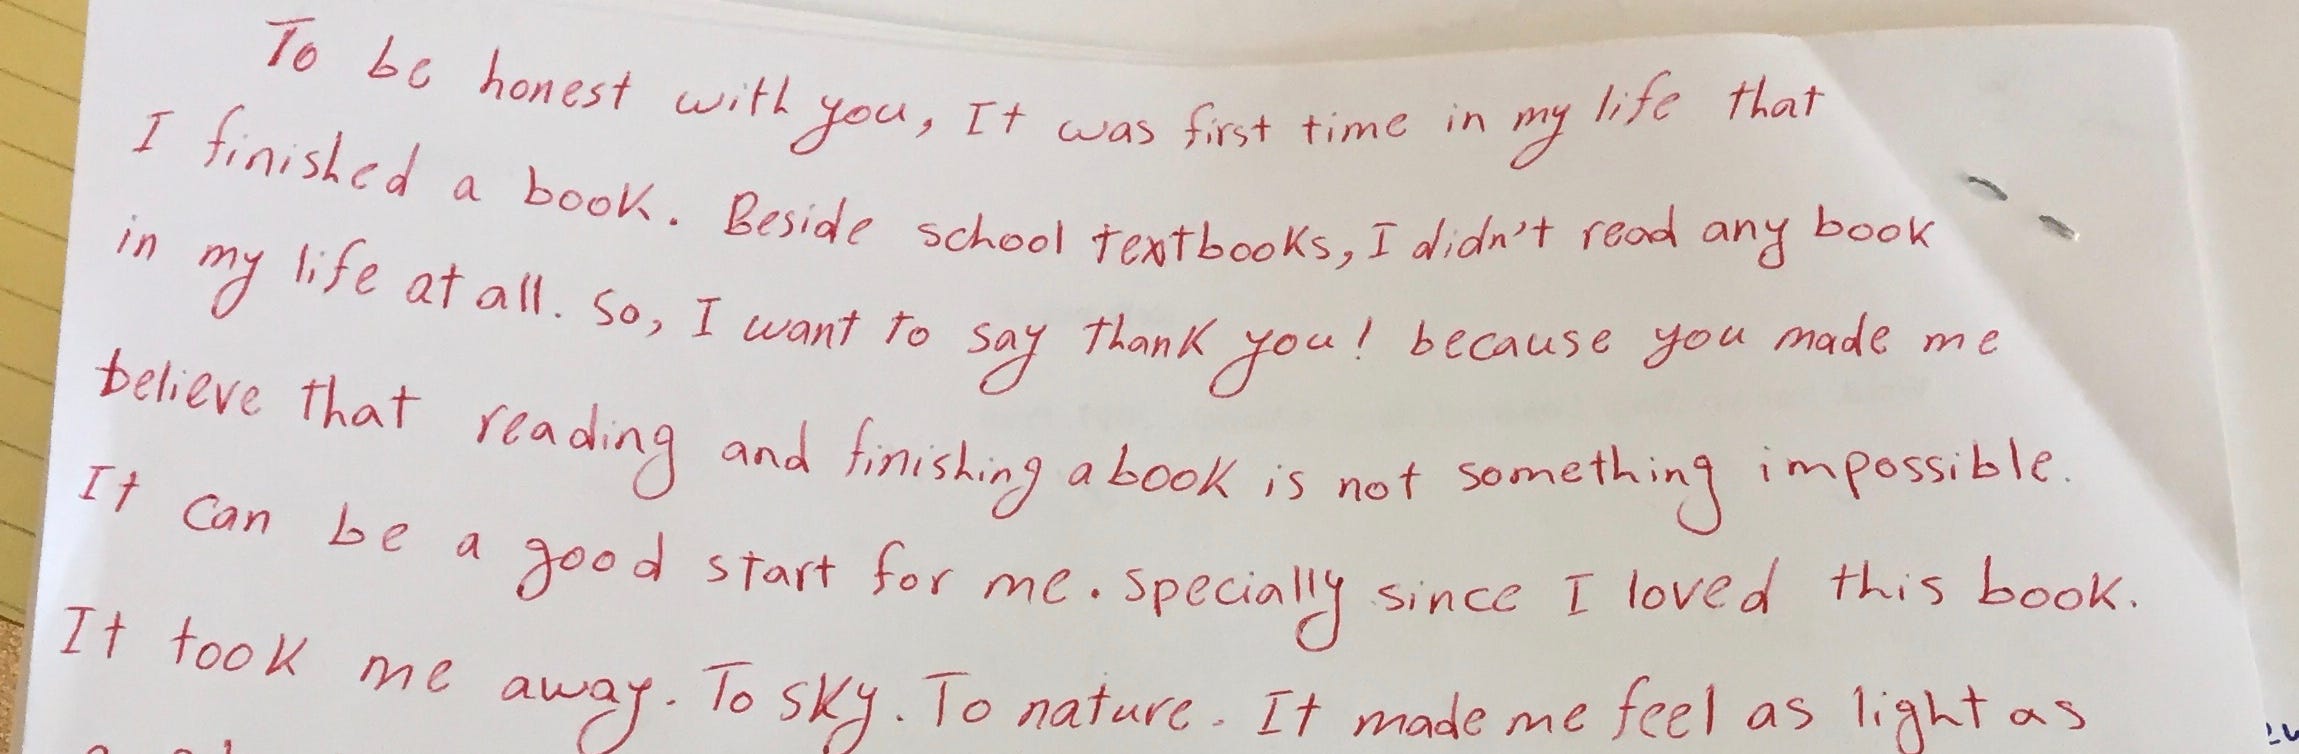 To be honest with you, It was first time in my life that
I finished a book. Beside school textbooks, I didn't read any book
in my life at all. So, I want to say thank you! because you made me
believe that reading and finishing a book is not something impossible.
It can be a good start for me. specially since I loved this book.
It took me away. To sky. To nature. It made me feel as light as